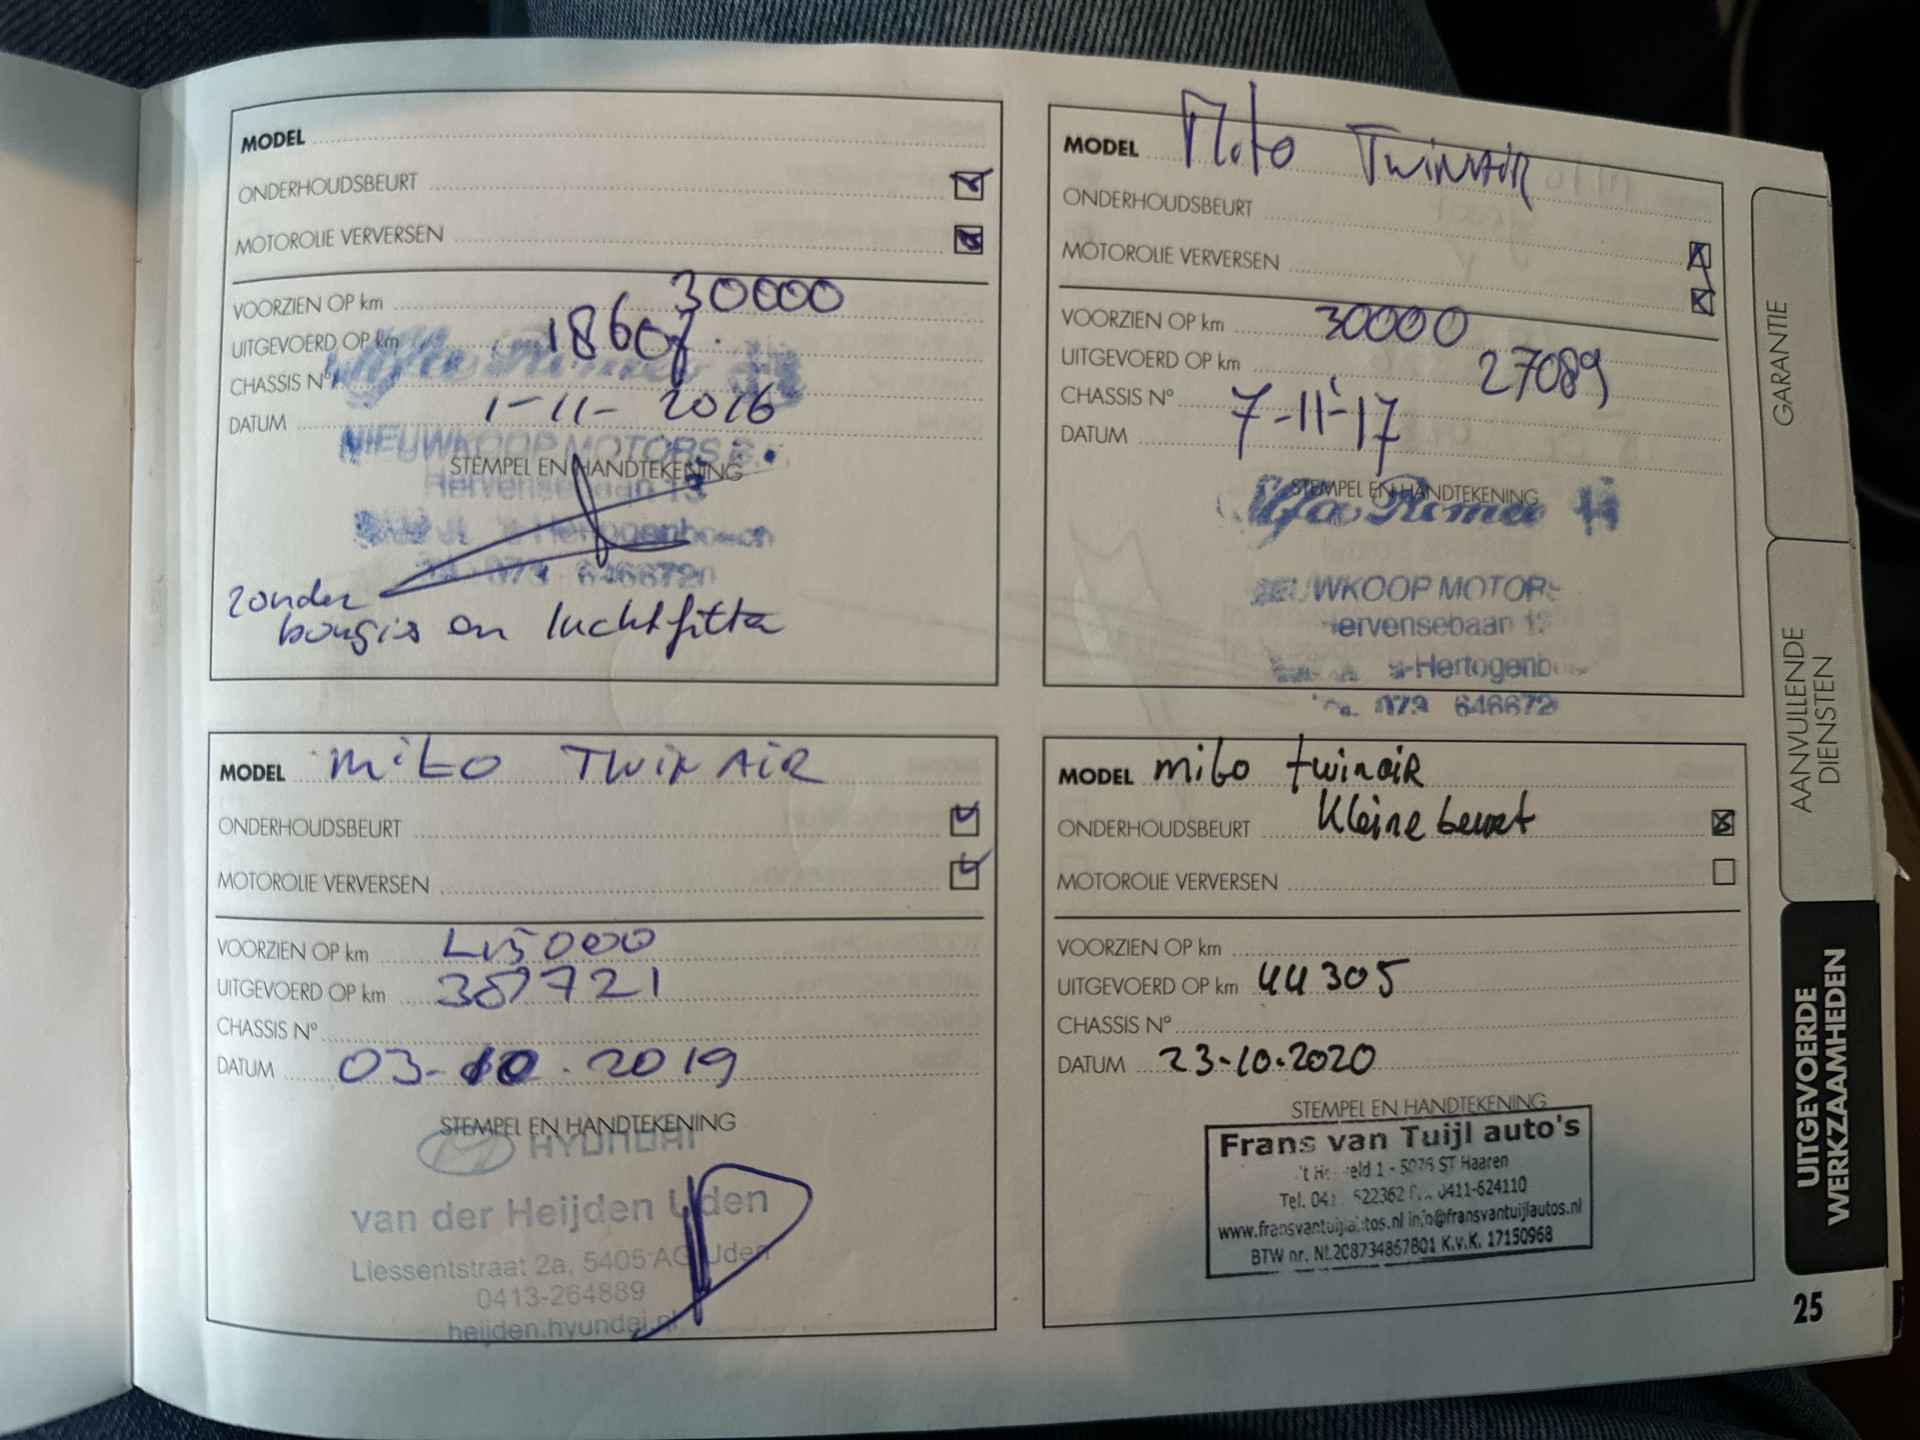 MODEL
ONDERHOUDSBEURT
MOTOROLIE VERVERSEN
VOORZIEN OP km 30000
UITGEVOERD OP km 18607
CHASSIS N°
DATUM 1-11-2016
Alfa Romeo
NIEUWKOOP MOTORS B.
STEMPEL EN HANDTEKENING
Hervensebaan 13
s-Hertogenbosch
073 - 6466720
zonder
bougis en luchtfilter
MODEL Mito TwinAir
ONDERHOUDSBEURT
MOTOROLIE VERVERSEN
VOORZIEN OP km 30000
UITGEVOERD OP km 27089
CHASSIS N°
DATUM 7-11-17
STEMPEL EN HANDTEKENING
Alfa Romeo
EUWKOOP MOTORS
ervensebaan 13
s-Hertogenb
073 646672
MODEL mito TWIN AIR
ONDERHOUDSBEURT
MOTOROLIE VERVERSEN
VOORZIEN OP km 45000
UITGEVOERD OP km 38721
CHASSIS N°
DATUM 03-10-2019
STEMPEL EN HANDTEKENING
HYUNDAI
van der Heijden Uden
Liessentstraat 2a, 5405 AG Uden
0413-264889
heijden.hyundai.nl
MODEL mito twinair
ONDERHOUDSBEURT Kleine beurt
MOTOROLIE VERVERSEN
VOORZIEN OP km
UITGEVOERD OP km 44305
CHASSIS N°
DATUM 23-10-2020
STEMPEL EN HANDTEKENING
Frans van Tuijl auto's
1 - 5076 ST Haaren
Tel. 522362 0411-624110
www.fransvantuijlautos.nl info@fransvantuijlautos.nl
BTW nr. NL208734867B01 K.v.K. 17150968
GARANTIE
AANVULLENDE
DIENSTEN
UITGEVOERDE
WERKZAAMHEDEN
25